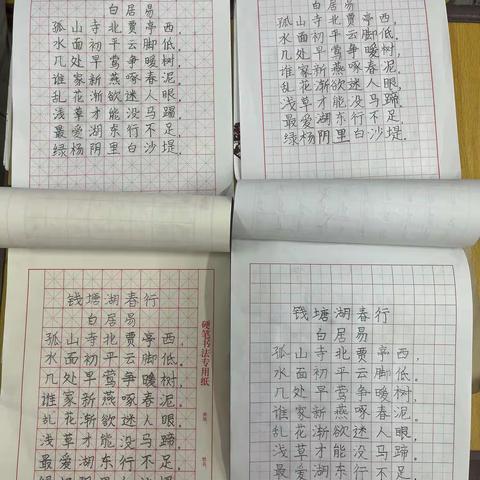 白居易
孤山寺北贾亭西，
水面初平云脚低。
几处早莺争暖树，
谁家新燕啄春泥。
乱花渐欲迷人眼，
浅草才能没马蹄。
最爱湖东行不足，
绿杨阴里白沙堤。
白居易
孤山寺北贾亭西，
水面初平云脚低。
几处早莺争暖树，
谁家新燕啄春泥。
乱花渐欲迷人眼，
浅草才能没马蹄。
最爱湖东行不足，
绿杨阴里白沙堤。
钱塘湖春行
白居易
孤山寺北贾亭西，
水面初平云脚低。
几处早莺争暖树，
谁家新燕啄春泥。
乱花渐欲迷人眼，
浅草才能没马蹄，
最爱湖东行不足，
硬笔书法专用纸
钱塘湖春行
白居易
孤山寺北贾亭西，
水面初平云脚低。
几处早莺争暖树，
谁家新燕啄春泥。
乱花渐欲迷人眼，
浅草才能没马蹄。
最爱湖东行不足